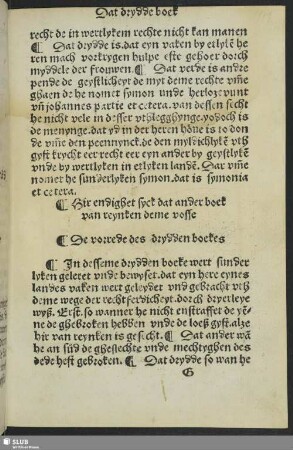 Dat drydde boek
recht de in werrlykem rechte nicht kan manen
¶ Dat drydde is. dat eyn vaken by etlykē he
ren mach vorkrygen hulpe efte gehoer dorch
myddele der frouwen. ¶ Dat verde is andre
pende de geystlicheyt de myt deme rechte vm̄e
ghaen de he nomet symon vnde herloze vunt
vn̄ johannes partie et cetera. van dessen secht
he nicht vele in desser vthlegghynge. yodoch is
de menynge. dat yd in der heren hōue is to don
de vm̄e den pennynck. de den myldichlykē vth
gyft krycht eer recht eer eyn ander by geystlykē
vnde by wertlyken in etlyken landē. Dar vm̄e
nomet he sunderlyken symon. dat is symonia
et cetera.
¶ Hir endighet syck dat ander boek
van reynken deme vosse
¶ De vorrede des drydden boekes
¶ In desseme drydden boeke wert sunder
lyken geleret vnde bewyset. dat eyn here eynes
landes vaken wert geleydet vnd gebracht vth
deme wege der rechtferdicheyt. dorch dryerleye
wyß. Erst. so wanner he nicht enstraffet de yē
ne de ghebroken hebben vnde de loeß gyft. alze
hir van reynken is gesecht. ¶ Dat ander wā
he an sūd de gheslechte vnde mechtyghen des
dede heft gebroken. ¶ Dat drydde so wan he
G
SLUB